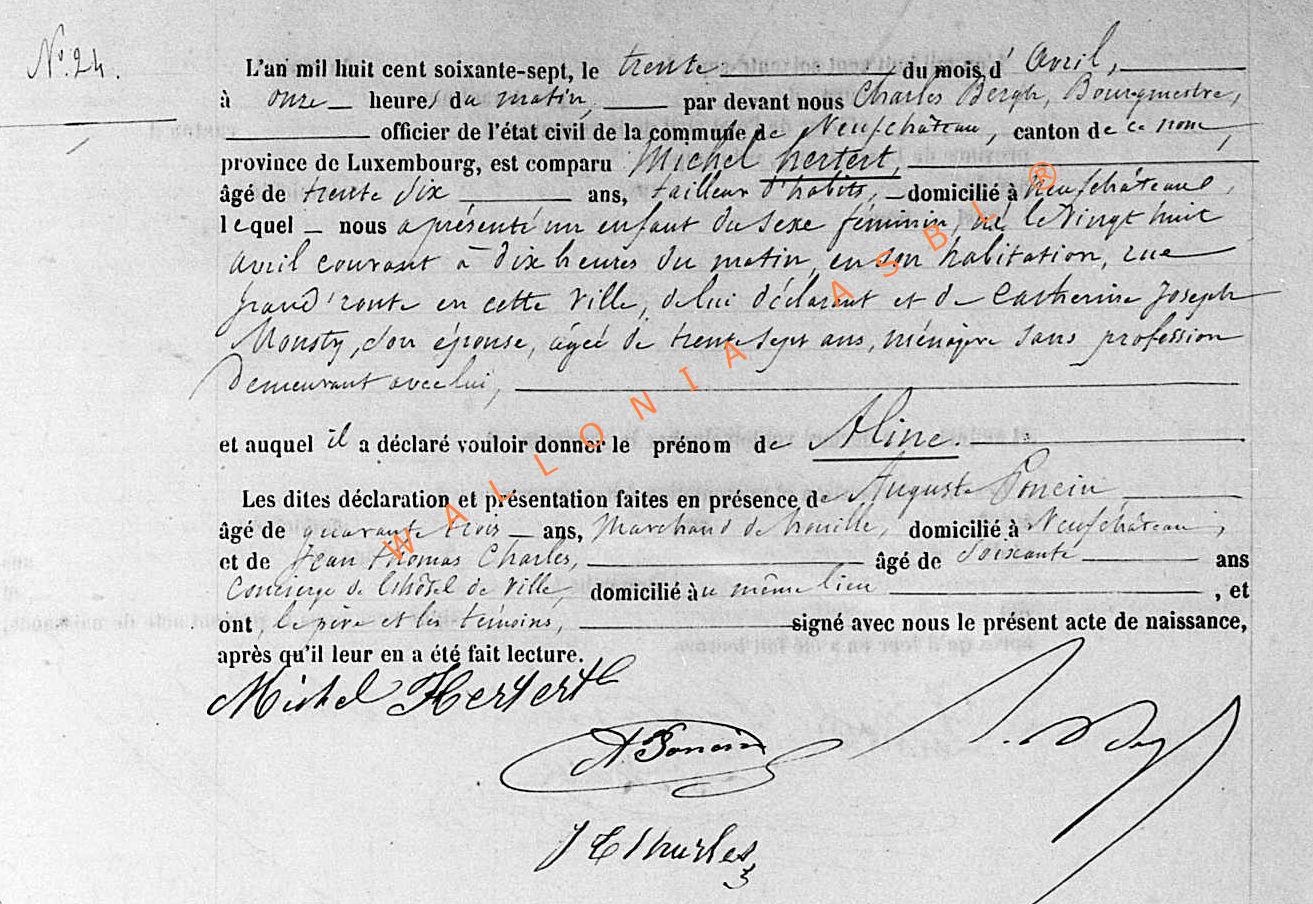 N° 24.
L'an mil huit cent soixante-sept, le trente du mois d'Avril,
à onze heures du matin, par devant nous Charles Bergh, Bourgmestre,
officier de l'état civil de la commune de Neufchâteau, canton de ce nom,
province de Luxembourg, est comparu Michel Hertert,
âgé de trente six ans, tailleur d'habits, domicilié à Neufchâteau,
lequel nous a présenté un enfant du sexe féminin, né le vingt huit
avril courant à dix heures du matin, en son habitation, rue
grand'route en cette ville, de lui déclarant et de Catherine Joseph
Mousty, son épouse, âgée de trente sept ans, ménagère sans profession
demeurant avec lui,
et auquel il a déclaré vouloir donner le prénom de Aline.
Les dites déclaration et présentation faites en présence de Auguste Poncin
âgé de quarante trois ans, Marchand de houille, domicilié à Neufchâteau,
et de Jean Thomas Charles, âgé de soixante ans
Concierge de l'hôtel de Ville, domicilié au même lieu , et
ont, le père et les témoins, signé avec nous le présent acte de naissance,
après qu'il leur en a été fait lecture.
Michel Hertert
A. Poncin
J T Charles
WALLONIA ASBL ®